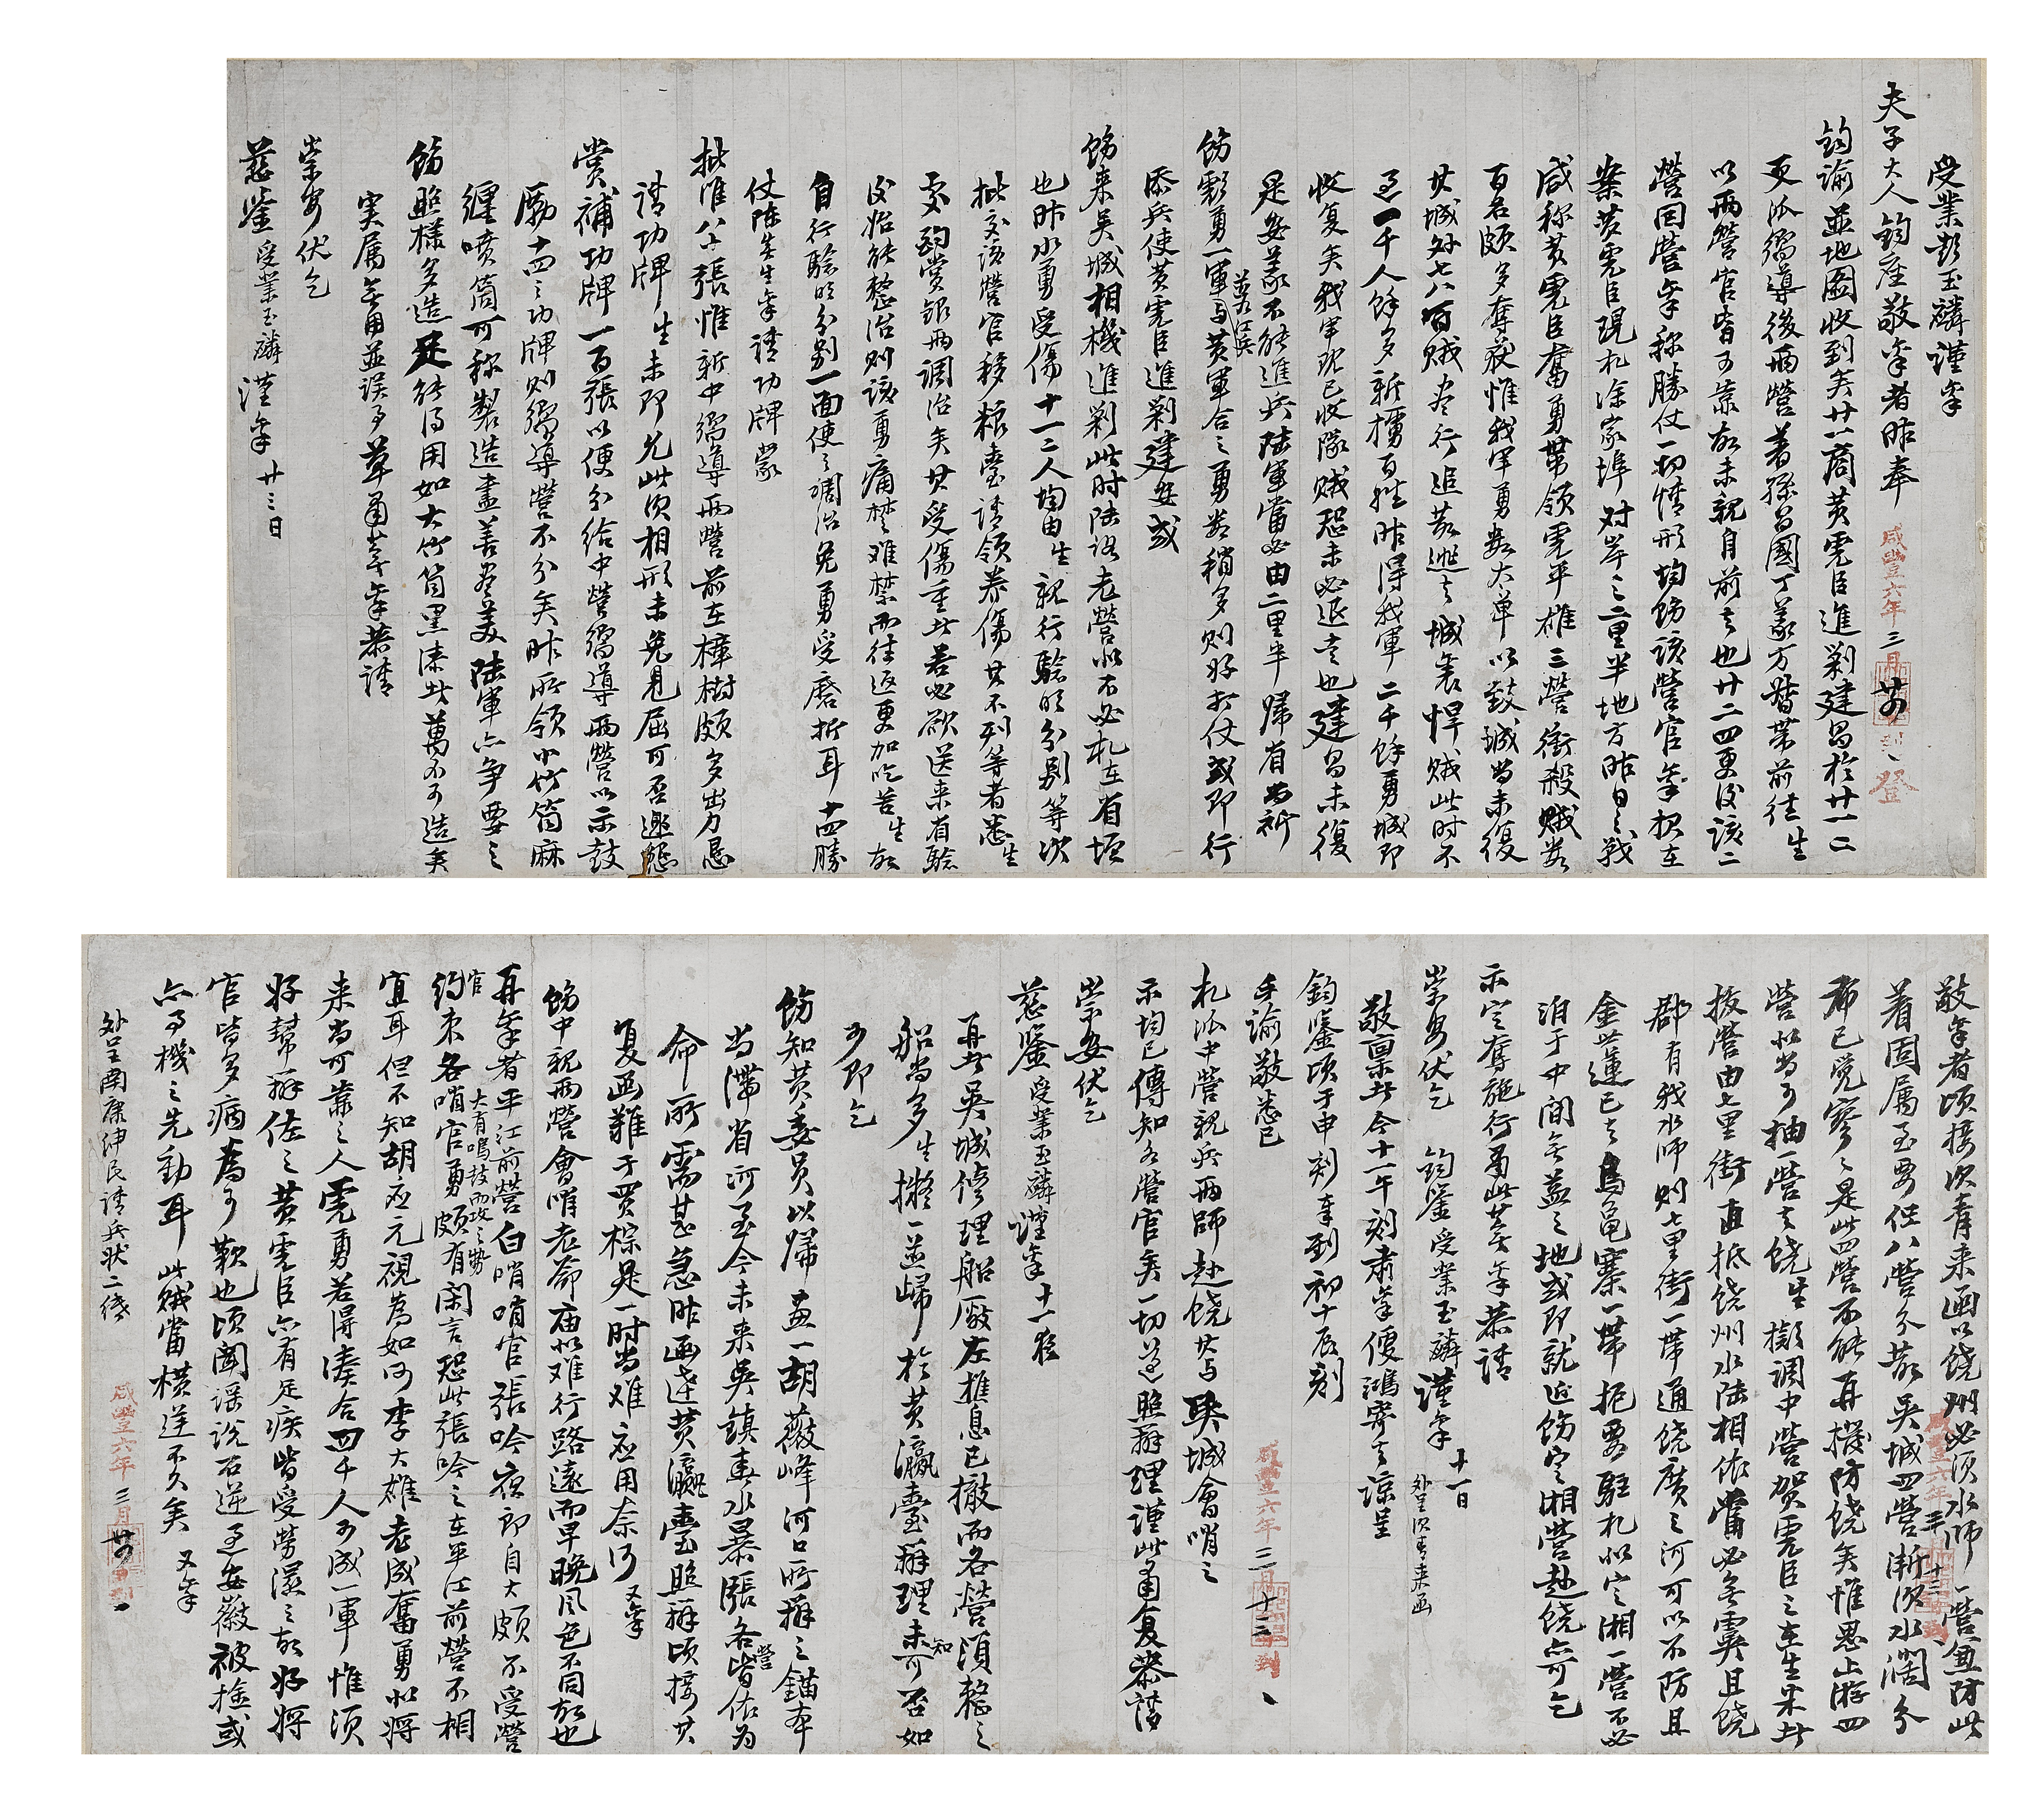 受業彭玉麟謹稟
夫子大人鈞座敬稟者昨奉
咸豐六年三月廿四到
登
鈞諭並地圖收到矣廿一商黃虎臣進剿建昌於廿一二
更派嚮導後兩營著孫昌國丁義方督帶前往生
以兩營官皆可靠故未親自前去也廿二四更後該二
營回營稟稱勝仗一切情形均飭該營官稟報在
案黃虎臣現札涂家埠對岸之二里半地方昨日之戰
咸稱黃虎臣奮勇帶領虎平雄三營衝殺賊数
百名頗多奪获惟我軍勇数太單以致城尚未復
其城外七八百賊盡行追散逃去城裏悍賊此時不
過一千人餘多新擄百姓昨得我軍二千餘勇城即
收复矣我軍現已收隊賊恐未必退去也建昌未復
是安義不能進兵陸軍當必由二里半歸省尚祈
飭彩勇一軍与黃軍合之勇数稍多則好打仗或即行
添兵使黃虎臣進剿建安或
飭来吳城相機進剿此时陆路老營似不必札在省垣
也昨水勇受傷十一二人均由生親行驗明分别等次
批交該營官移粮臺請領养傷其不列等者悉生
處酌賞銀兩調治矣其受傷重者若必欲送来省驗
後始能整治則該勇痛楚难禁而往返更加吃苦生故
自行驗明分别一面使之调治免勇受磨折耳十四勝
仗陈生生稟請功牌蒙
批准八六張惟新中嚮導兩營前在樟樹頗多出力忌
請功牌生未即允此次相形未免見屈可否邀懇
賞補功牌一百張以便分給中營嚮導兩營以示鼓
勵十四之功牌則嚮導營不分矣昨所領小竹筒麻
纏喷筒可称製造盡善尽美陆軍亦争要之
飭照樣多造足能得用如大竹筒黑漆者萬不可造矣
实属無用並误事草肅葶稟恭請
崇安伏乞
慈鑒受業玉麟謹稟廿三日
敬稟者頃接次青来函以饒州必須水師一營兼防此
着固属至要但八營分散吳城四營漸次水濶分
布已覺寥寥是此四營不能再撥防饒矣惟思上游四
營似尚可抽一營去饒生擬調中營賀虎臣之在生米者
拔營由七里街直抵饒州水陆相依當必無虞且饒
郡有我水师則七里街一帶通饒廣之河可以不防且
金世蓮已去烏龜寨一帶扼要駐札似定湘一營不必
泊于中間無益之地或即就近飭定湘營赴饒亦可乞
示定奪施行肅此葶稟恭請
崇安伏乞 鈞鑒受業玉麟謹稟十一日
外呈次青来函
敬禀者今十一午刻肅稟便鴻寄去諒呈
鈞鑒頃于申刻奉到初十辰刻
手諭敬悉已
札派中營親兵兩師赴饒其与
咸豐六年三月十二到
吳城會哨之
示均已傳知各營官矣一切遵照辦理謹此肅复恭請
崇安伏乞
慈鑒受業玉麟謹稟十一夜
再者吳城修理船廠左樵息已撤而各營須整之
船尚多生擬一並歸於黃瀛臺辦理未知可否如
可即乞
飭知黃委員以歸画一胡薇峰河口所辦之錨本
尚滯省河至今未来吳鎮春水暴漲各營皆依为
命所需甚急昨函達黃瀛臺照辦頃接其
复函難于買棕是一时尚难应用奈何又稟
飭中親兩營會哨老爺庙似难行路遠而早晚風色不同故也
再稟者平江前營白哨哨官張吟夜郎自大頗不受營
官約束各哨官勇頗有闲言恐此張吟之在平江前營不相
大有鳴鼓而攻之勢
宜耳但不知胡应元視為如何李大雄老成奮勇似将
来尚可靠之人虎勇若得湊合四千人可成一軍惟須
好幫辦佐之黃虎臣亦有足疾皆受勞濕之故好将
官皆多病為可歎也頃聞謡說石逆至安徽被擒或
亦事機之先動耳此賊當横逆不久矣又稟
咸豐六年三月廿四到
外呈南康紳民請兵状二纸